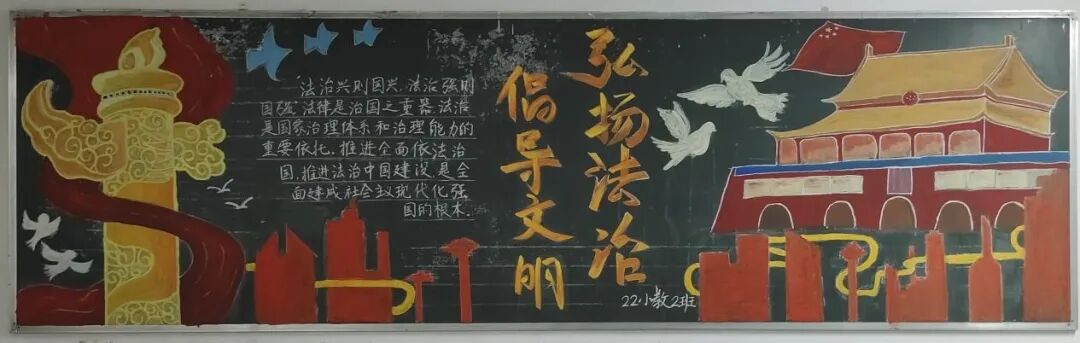 弘扬法治
倡导文明
法治兴则国兴,法治强则
国强,法律是治国之重器,法治
是国家治理体系和治理能力的
重要依托,推进全面依法治
国,推进法治中国建设,是全
面建成社会主义现代化强
国的根本.
22小教2班